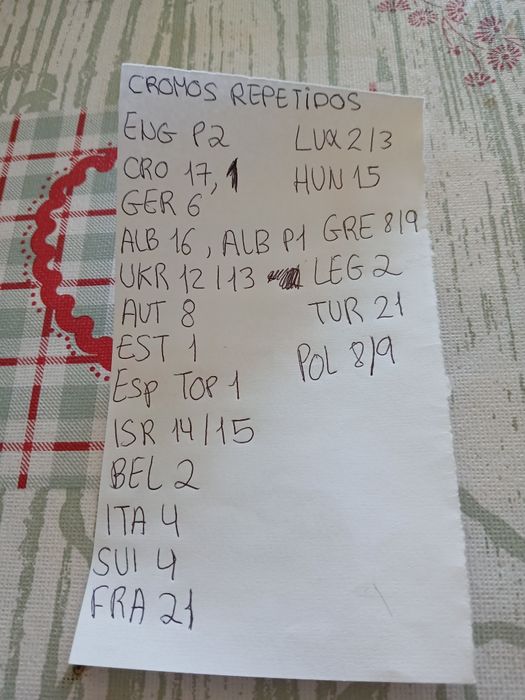 CROMOS REPETIDOS
ENG P2
CRO 17, 1
GER 6
ALB 16, ALB P1
UKR 12/13
AUT 8
EST 1
Esp TOP 1
ISR 14/15
BEL 2
ITA 4
SUI 4
FRA 21
LUX 2/3
HUN 15
GRE 8/9
LEG 2
TUR 21
POL 8/9